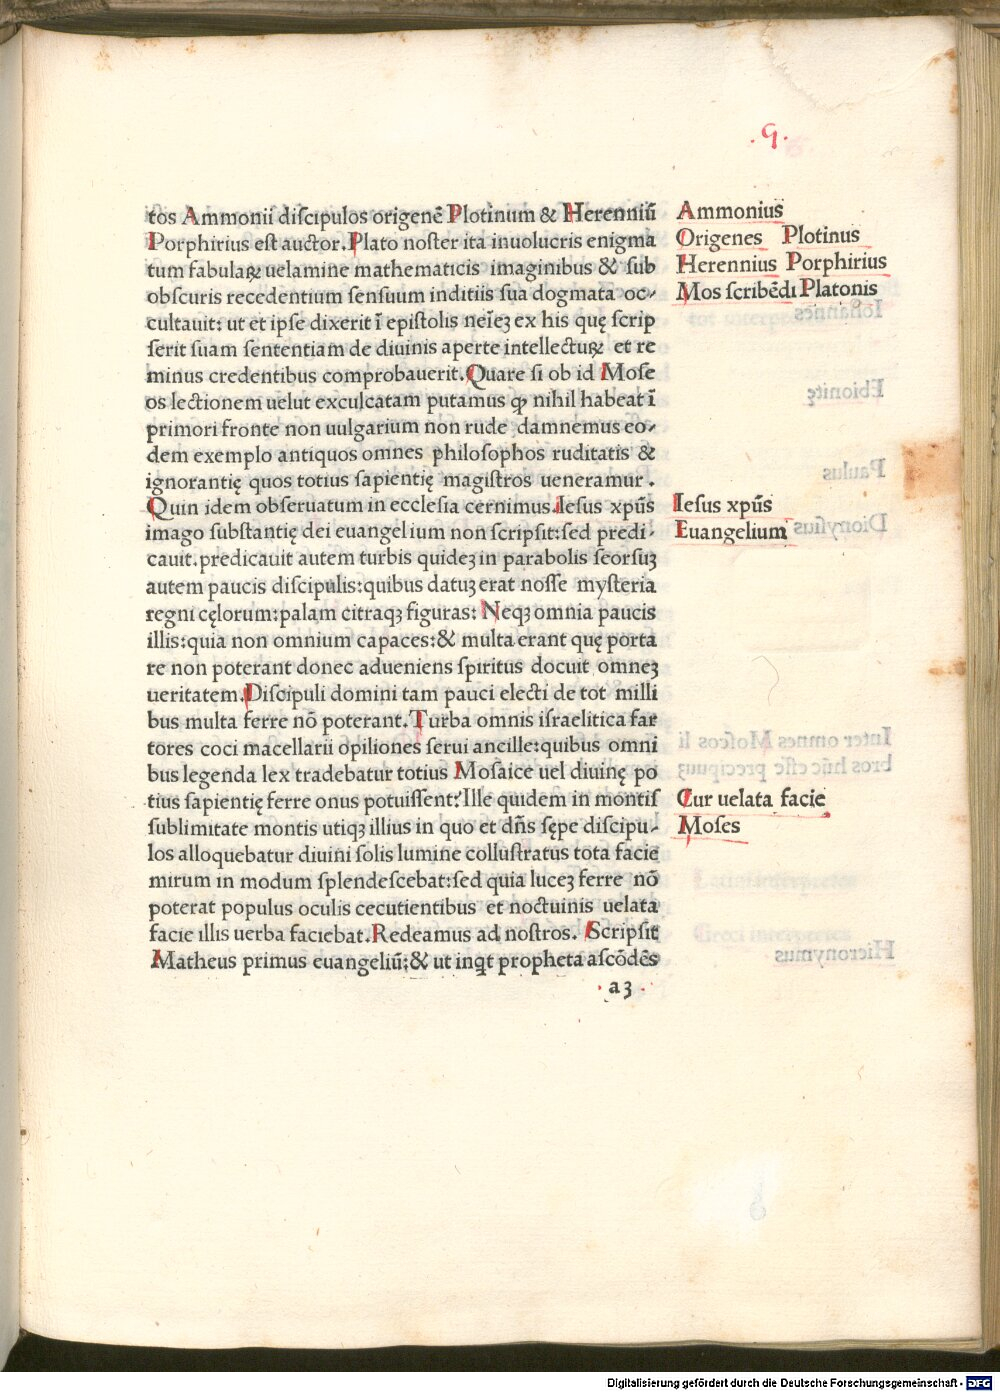 .9.
tos Ammonii diſcipulos origenē Plotinum & Herenniū
Porphirius eſt auctor. Plato noſter ita inuolucris enigma
tum fabulaꝝ uelamine mathematicis imaginibus & ſub
obſcuris recedentium ſenſuum inditiis ſua dogmata oc⸗
cultauit: ut et ipſe dixerit ī epiſtolis neīeꝫ ex his quę ſcrip
ſerit ſuam ſententiam de diuinis aperte intellectuꝝ et re
minus credentibus comprobauerit. Quare ſi ob id Moſe
os lectionem uelut exculcatam putamus ꝙ nihil habeat ī
primori fronte non uulgarium non rude damnemus eo⸗
dem exemplo antiquos omnes philoſophos ruditatis &
ignorantię quos totius ſapientię magiſtros ueneramur.
Quin idem obſeruatum in eccleſia cernimus. Ieſus xpūs
imago ſubſtantię dei euangelium non ſcripſit: ſed predi⸗
cauit. predicauit autem turbis quideꝫ in parabolis ſeorſuꝫ
autem paucis diſcipulis: quibus datuꝫ erat noſſe myſteria
regni cęlorum: palam citraqꝫ figuras: Neqꝫ omnia paucis
illis: quia non omnium capaces: & multa erant quę porta
re non poterant donec adueniens ſpiritus docuit omneꝫ
ueritatem. Diſcipuli domini tam pauci electi de tot milli
bus multa ferre nō poterant. Turba omnis iſraelitica far
tores coci macellarii opiliones ſerui ancille: quibus omni
bus legenda lex tradebatur totius Moſaice uel diuinę po
tius ſapientię ferre onus potuiſſent? Ille quidem in montiſ
ſublimitate montis utiqꝫ illius in quo et dn̄s ſępe diſcipu⸗
los alloquebatur diuini ſolis lumine colluſtratus tota facie
mirum in modum ſplendeſcebat: ſed quia luceꝫ ferre nō
poterat populus oculis cecutientibus et noctuinis uelata
facie illis uerba faciebat. Redeamus ad noſtros. Scripſit
Matheus primus euangeliū: & ut inqt propheta aſcōdēs
a3
Ammonius
Origenes Plotinus
Herennius Porphirius
Mos ſcribēdi Platonis
Ieſus xpūs
Euangelium
Cur uelata facie
Moſes
Digitalisierung gefördert durch die Deutsche Forschungsgemeinschaft - DFG